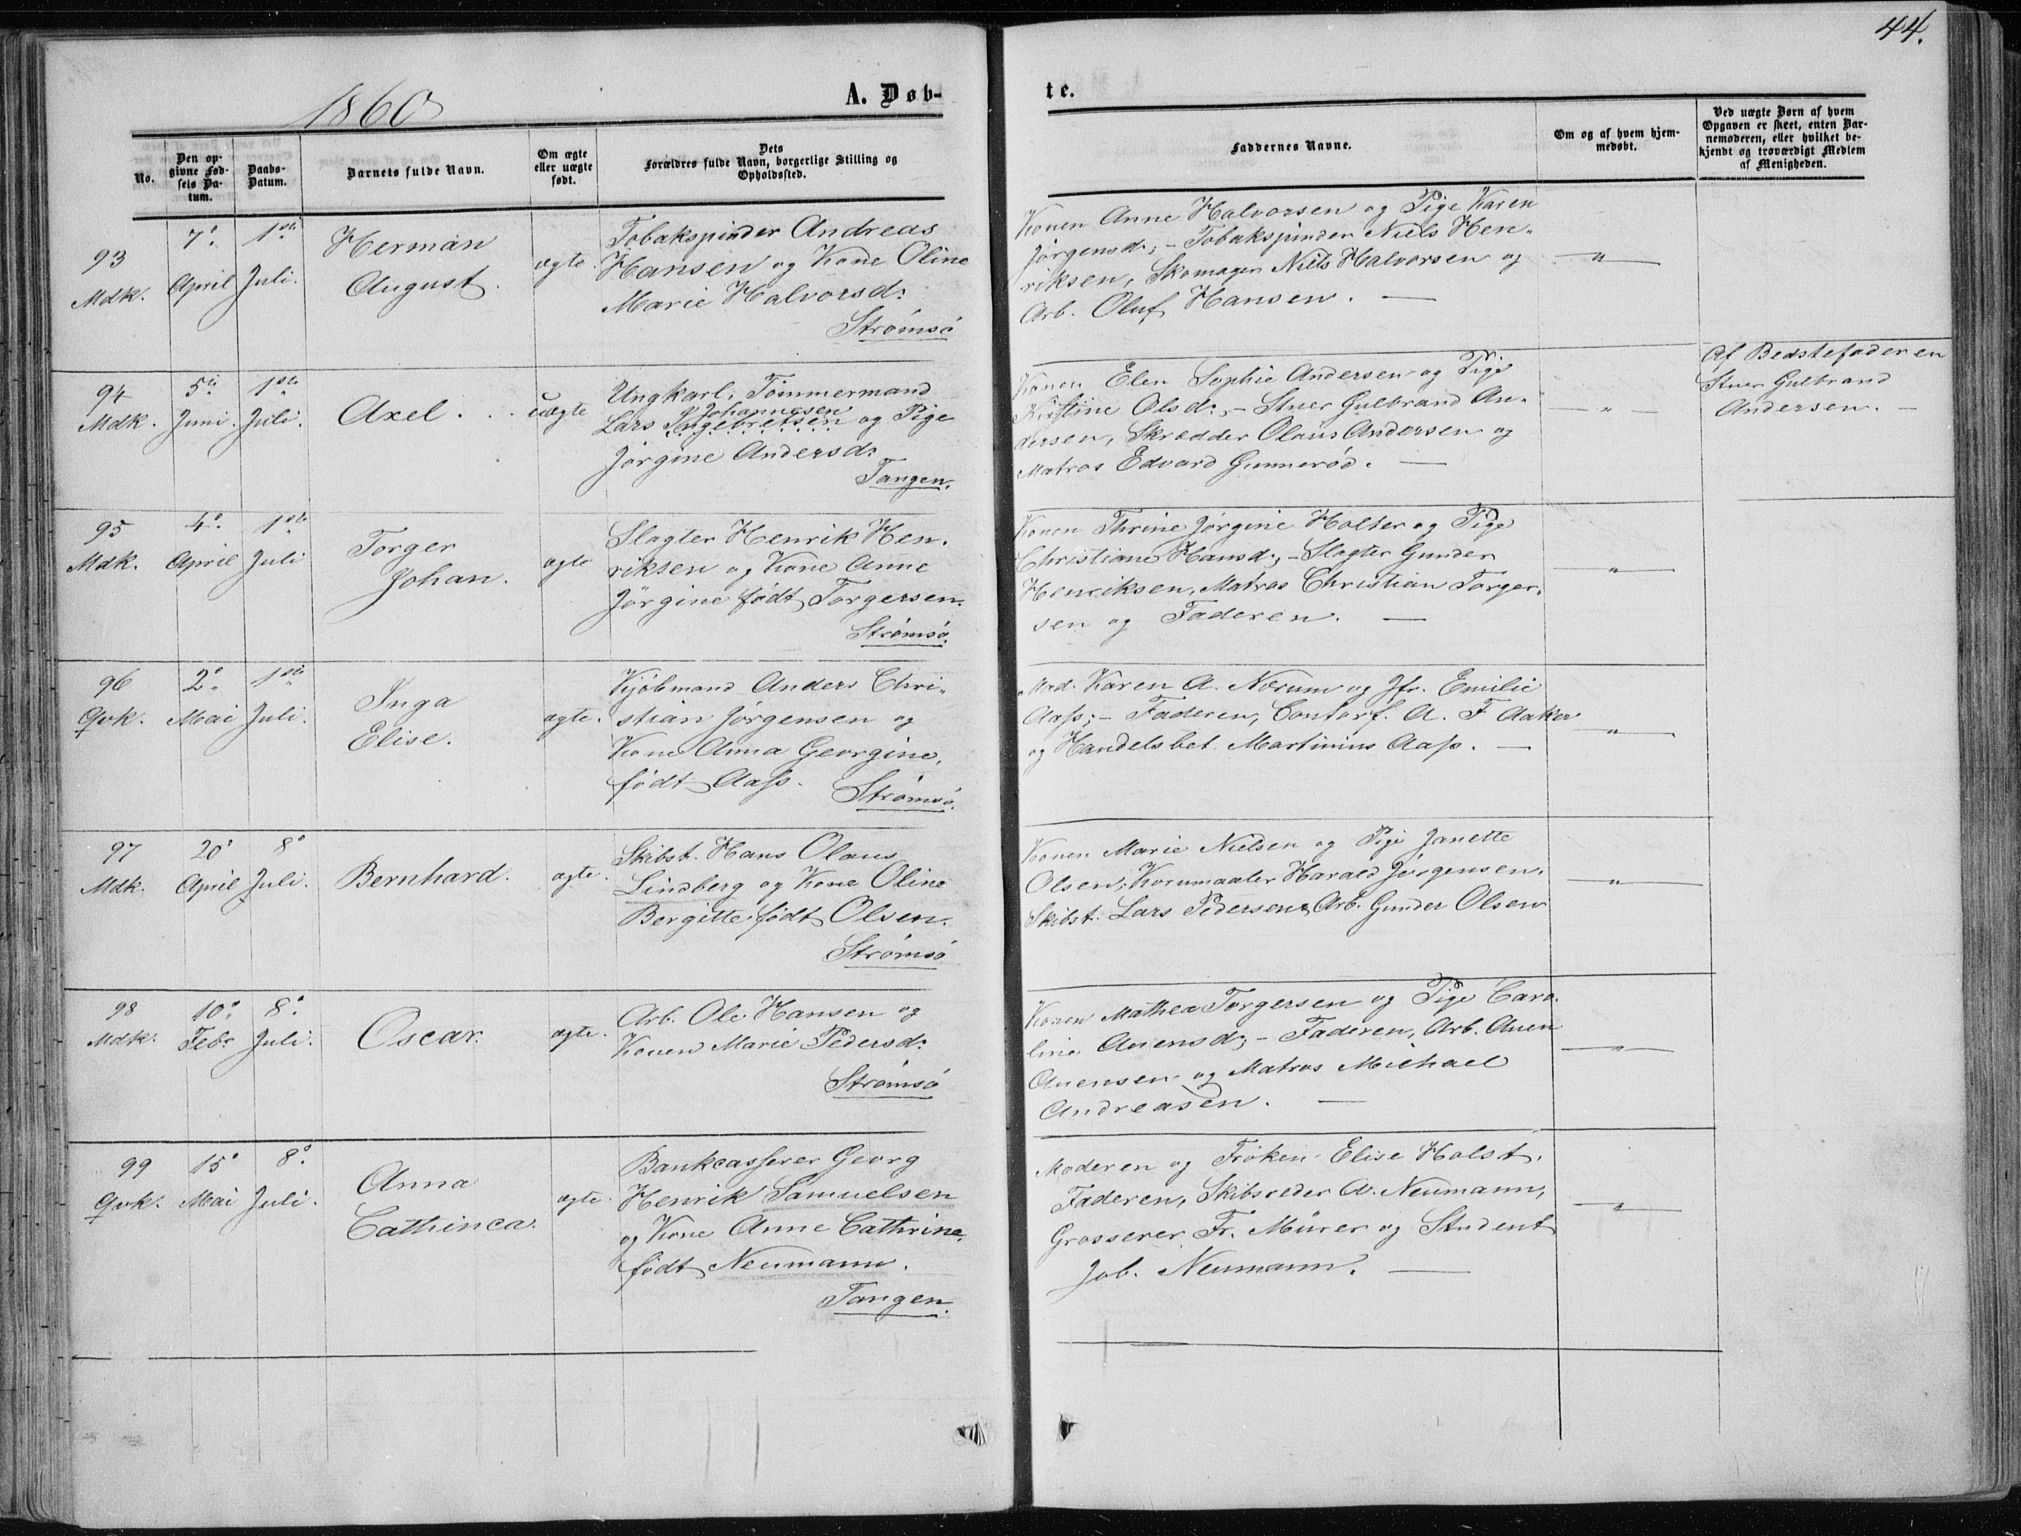 44.
1860
A. Døb-
te.
No.
Den op-
givne Fød-
sels Da-
tum.
Daabs-
Datum.
Barnets fulde Navn.
Om ægte
eller uægte
født.
Dets
Forældres fulde Navn, borgerlige Stilling og
Opholdssted.
Faddernes Navne.
Om og af hvem hjem-
medøbt.
Ved uægte Børn af hvem
Opgaven er skeet, enten Bar-
nemoderen, eller hvilket be-
kjendt og troværdigt Medlem
af Menigheden.
93
Mdk.
7de
April
1ste
Juli.
Herman
August.
ægte.
Tobakspinder Andreas
Hansen og Kone Oline
Marie Halvorsd:
Strømsø
Konen Anne Halvorsen og Pige Karen
Jørgensd:; - Tobakspinder Niels Hen-
riksen, Skomager Niels Halvorsen og
Arb. Oluf Hansen. —
— " —
94
Mdk.
5te
Juni.
1ste
Juli.
Axel. . .
uægte
Ungkarl, Tømmermand
Johannesen
Lars Ingebretsen og Pige
Jørgine Andersd:
Tangen.
Konen Elen Sophie Andersen og Pige
Kirstine Olsd:, - Stuer Gulbrand An-
dersen, Skrædder Olaus Andersen og
Matros Edvard Gunnerød. —
— " —
Af Bedstefaderen
Stuer Gulbrand
Andersen. —
95
Mdk.
4de
April
1ste
Juli
Torger
Johan.
ægte
Slagter Henrik Hen-
riksen og Kone Anne
Jørgine født Torgersen.
Strømsø.
Konen Thrine Jørgine Holter og Pige
Christiane Hansd:; - Slagter Gunder
Henriksen, Matros Christian Torger-
sen og Faderen. —
— " —
96
Qvk.
2den
Mai
1ste
Juli.
Inga
Elise.
ægte.
Kjøbmand Anders Chri-
stian Jørgensen og
Kone Anna Georgine,
født Aass.
Strømsø.
Mad. Karen A. Nærum og Jfr. Emilie
Aass; - Faderen, Contorf. A. F. Aaker
og Handelsbet. Martinius Aass. —
— " —
97
Mdk.
20de
April
8de
Juli.
Bernhard.
ægte.
Skibst. Hans Olaus
Lindberg og Kone Oline
Bergitte født Olsen.
Strømsø
Konen Marie Nielsen og Pige Janette
Olsen; Kornmaaler Harald Jørgensen,
Skibst. Lars Pedersen, Arb. Gunder Olsen
— " —
98
Mdk.
10de
Febr
8de
Juli.
Oscar.
ægte.
Arb. Ole Hansen og
Konen Marie Pedersd:
Strømsø
Konen Mathea Torgersen og Pige Caro-
line Auensd; - Faderen, Arb. Auen
Auensen og Matros Michael
Andreasen. —
— " —
99
Qvk.
15de
Mai
8de
Juli.
Anna
Cathinca.
ægte.
Bankcasserer Georg
Henrik Samuelsen
og Kone Anne Cathrine,
født Neumann.
Tangen.
Moderen og Frøken Elise Holst.
Faderen, Skibsreder A. Neumann,
Grosserer Fr. Mürer og Student
Job. Neumann. —
— " —